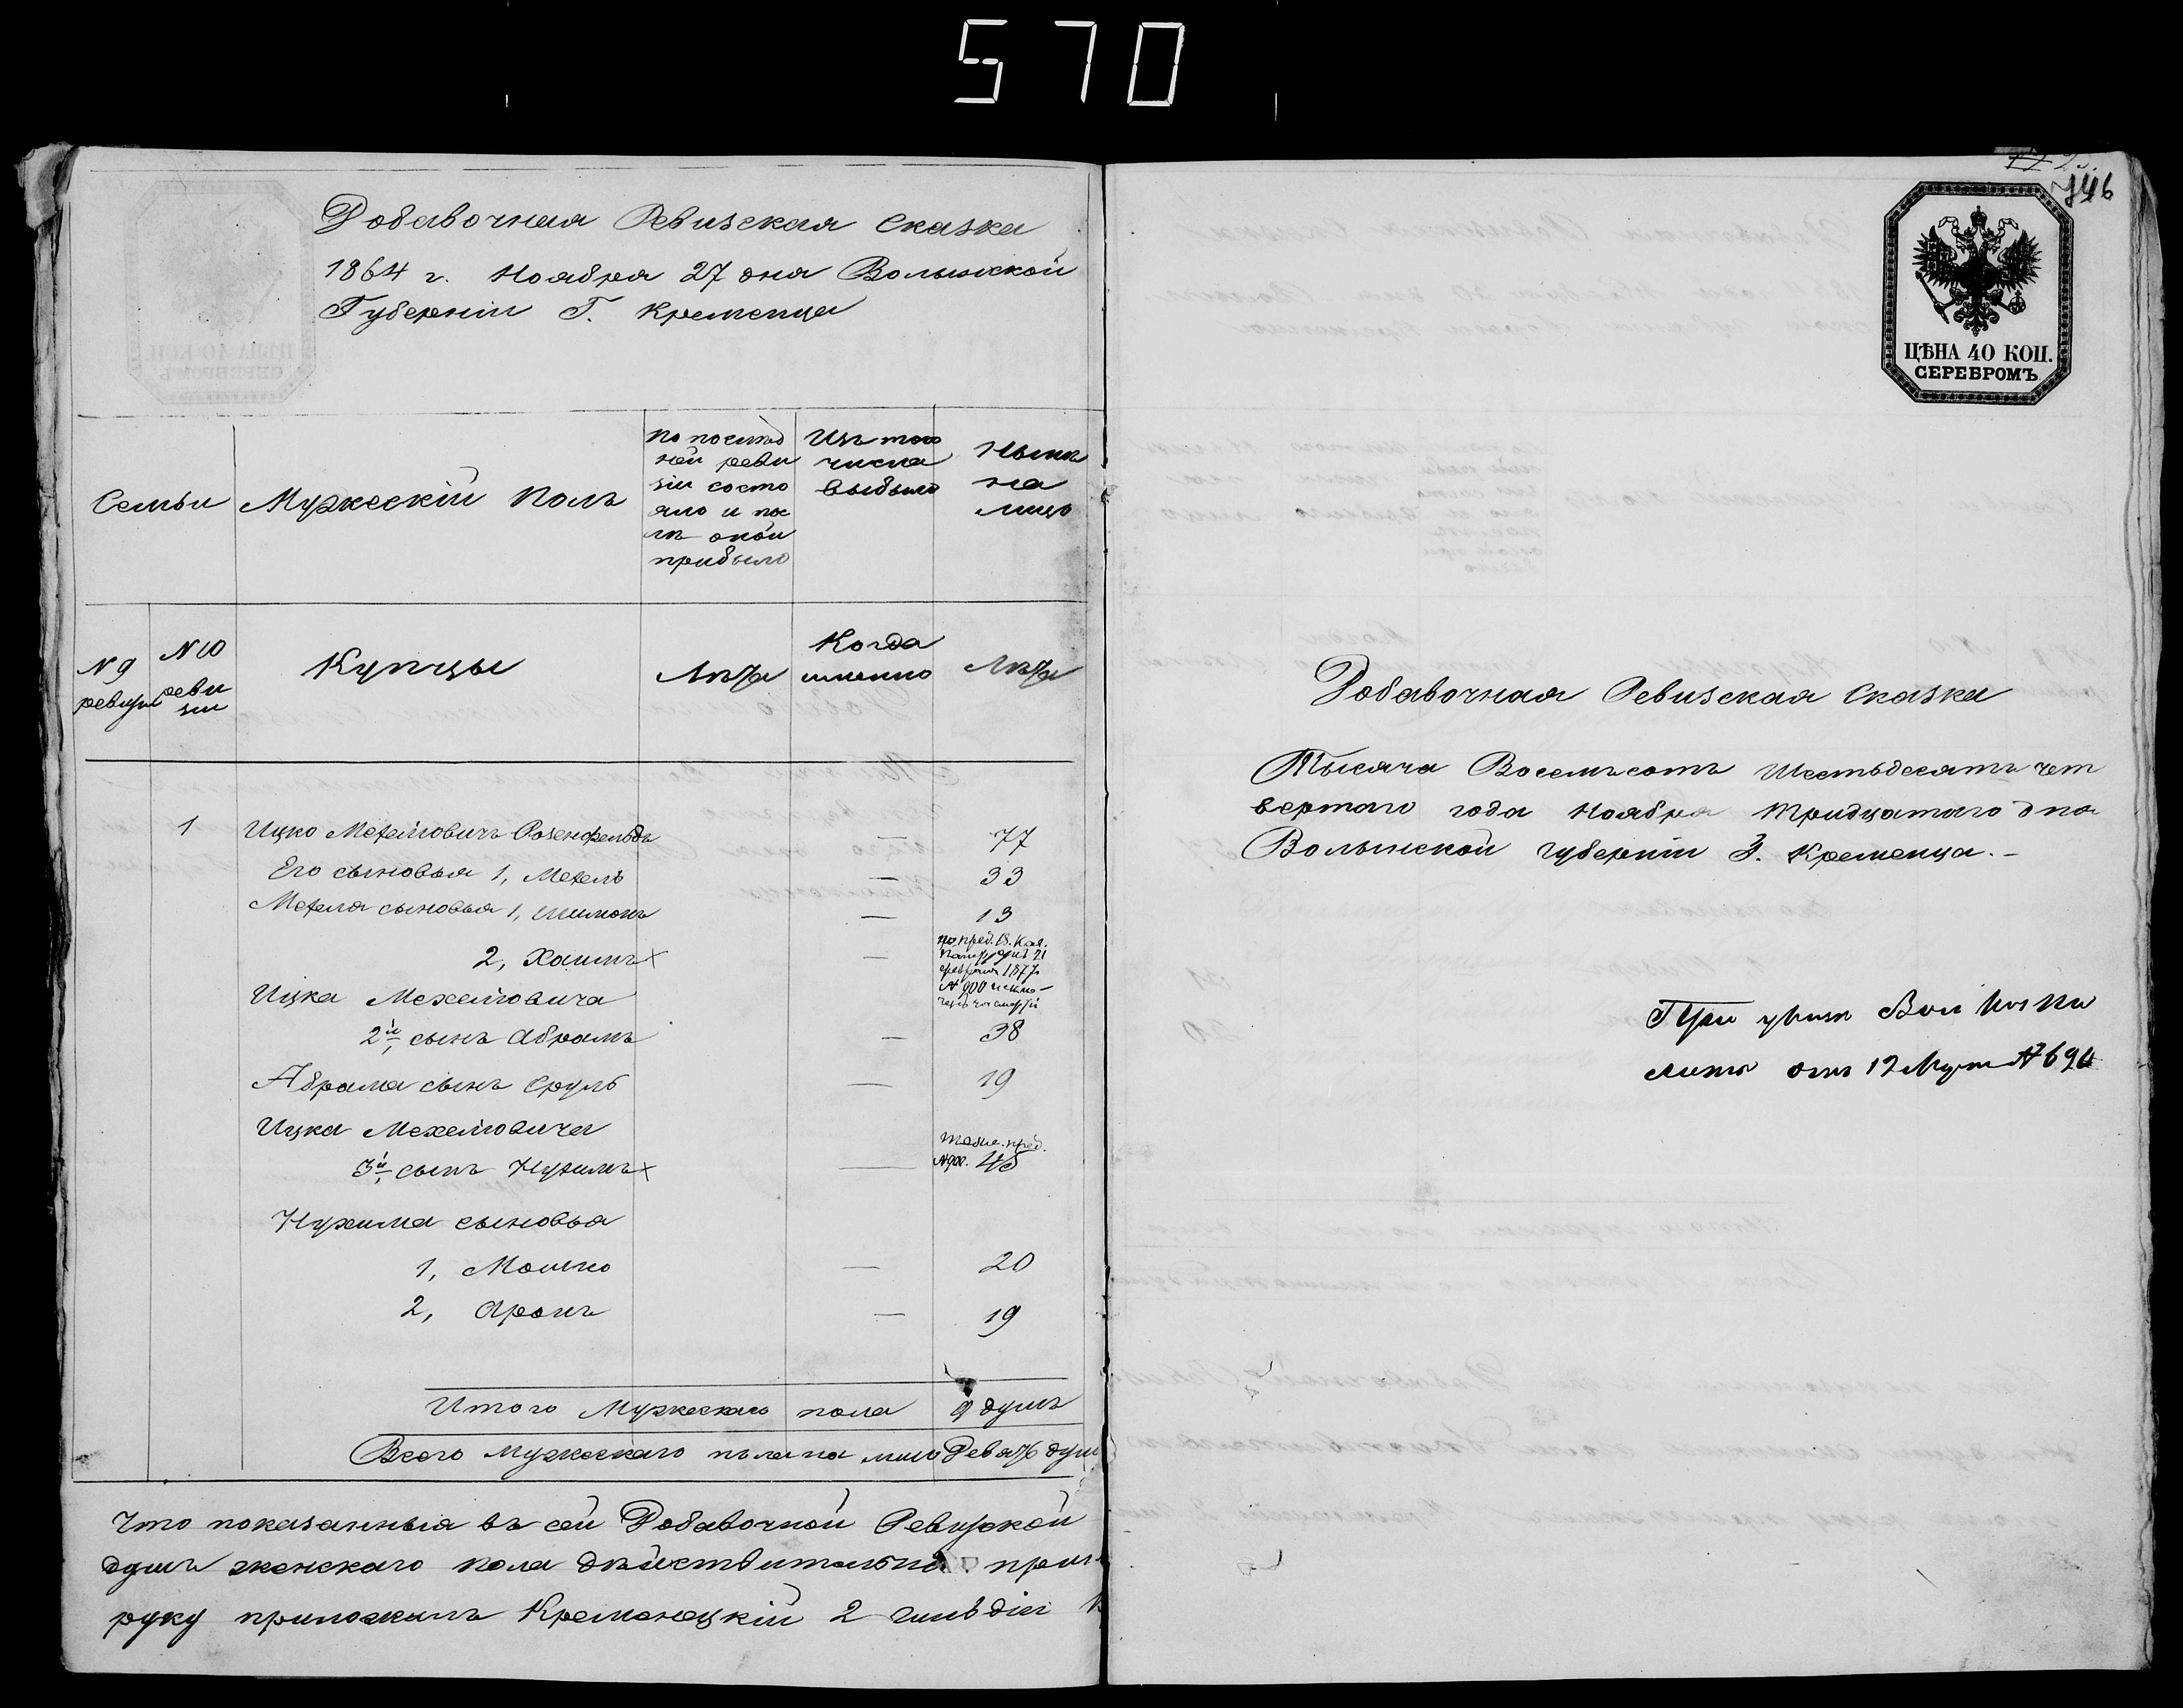 570
Добавочная Ревизская Сказка
1864 г. Ноября 27 дня Волынской
Губерніи Г. Кременца
Семьи
Мужескій Полъ
По послѣд
ней реви
зіи состо
яло и пос
лѣ оной
прибыло
Изъ того
числа
выбыло
Нынѣ
на
лицо
N 9
ревизіи
N 10
реви
зіи
Купцы
Лѣта
Когда
именно
Лѣта
1 Ицко Мехелiовичъ Розенфельдъ — 77
Его сыновья 1, Мехель — 33
Мехеля сыновья 1, Шимонъ — 13
2, Хаимъ х —
по пред. В. Каз.
Палаты отъ 21
февраля 1877
№ 900 исклю-
ченъ за смертiю
Ицка Мехелiовича
2й сынъ Абрамъ — 38
Абрама сынъ Сруль — 19
Ицка Мехелiовича
3й сынъ Нухимъ х —
пред.
№ 900. 45
Нухима сыновья
1, Мошко — 20
2, Аронъ — 19
Итого Мужескаго пола 9 душъ
Всего мужескаго пола на лицо Девять душ
Что показанныя въ сей Добавочной Ревизской
душъ женскаго пола дѣйствительно
руку приложилъ Кременецкій 2 гильдіи
746
ЦѢНА 40 КОП.
СЕРЕБРОМЪ
Добавочная Ревизская Сказка
Тысяча Восемьсотъ Шестьдесятъ чет
вертаго года Ноября тридцатаго дня
Волынской губерніи Г. Кременца. –
При указѣ Вол
латы отъ 12